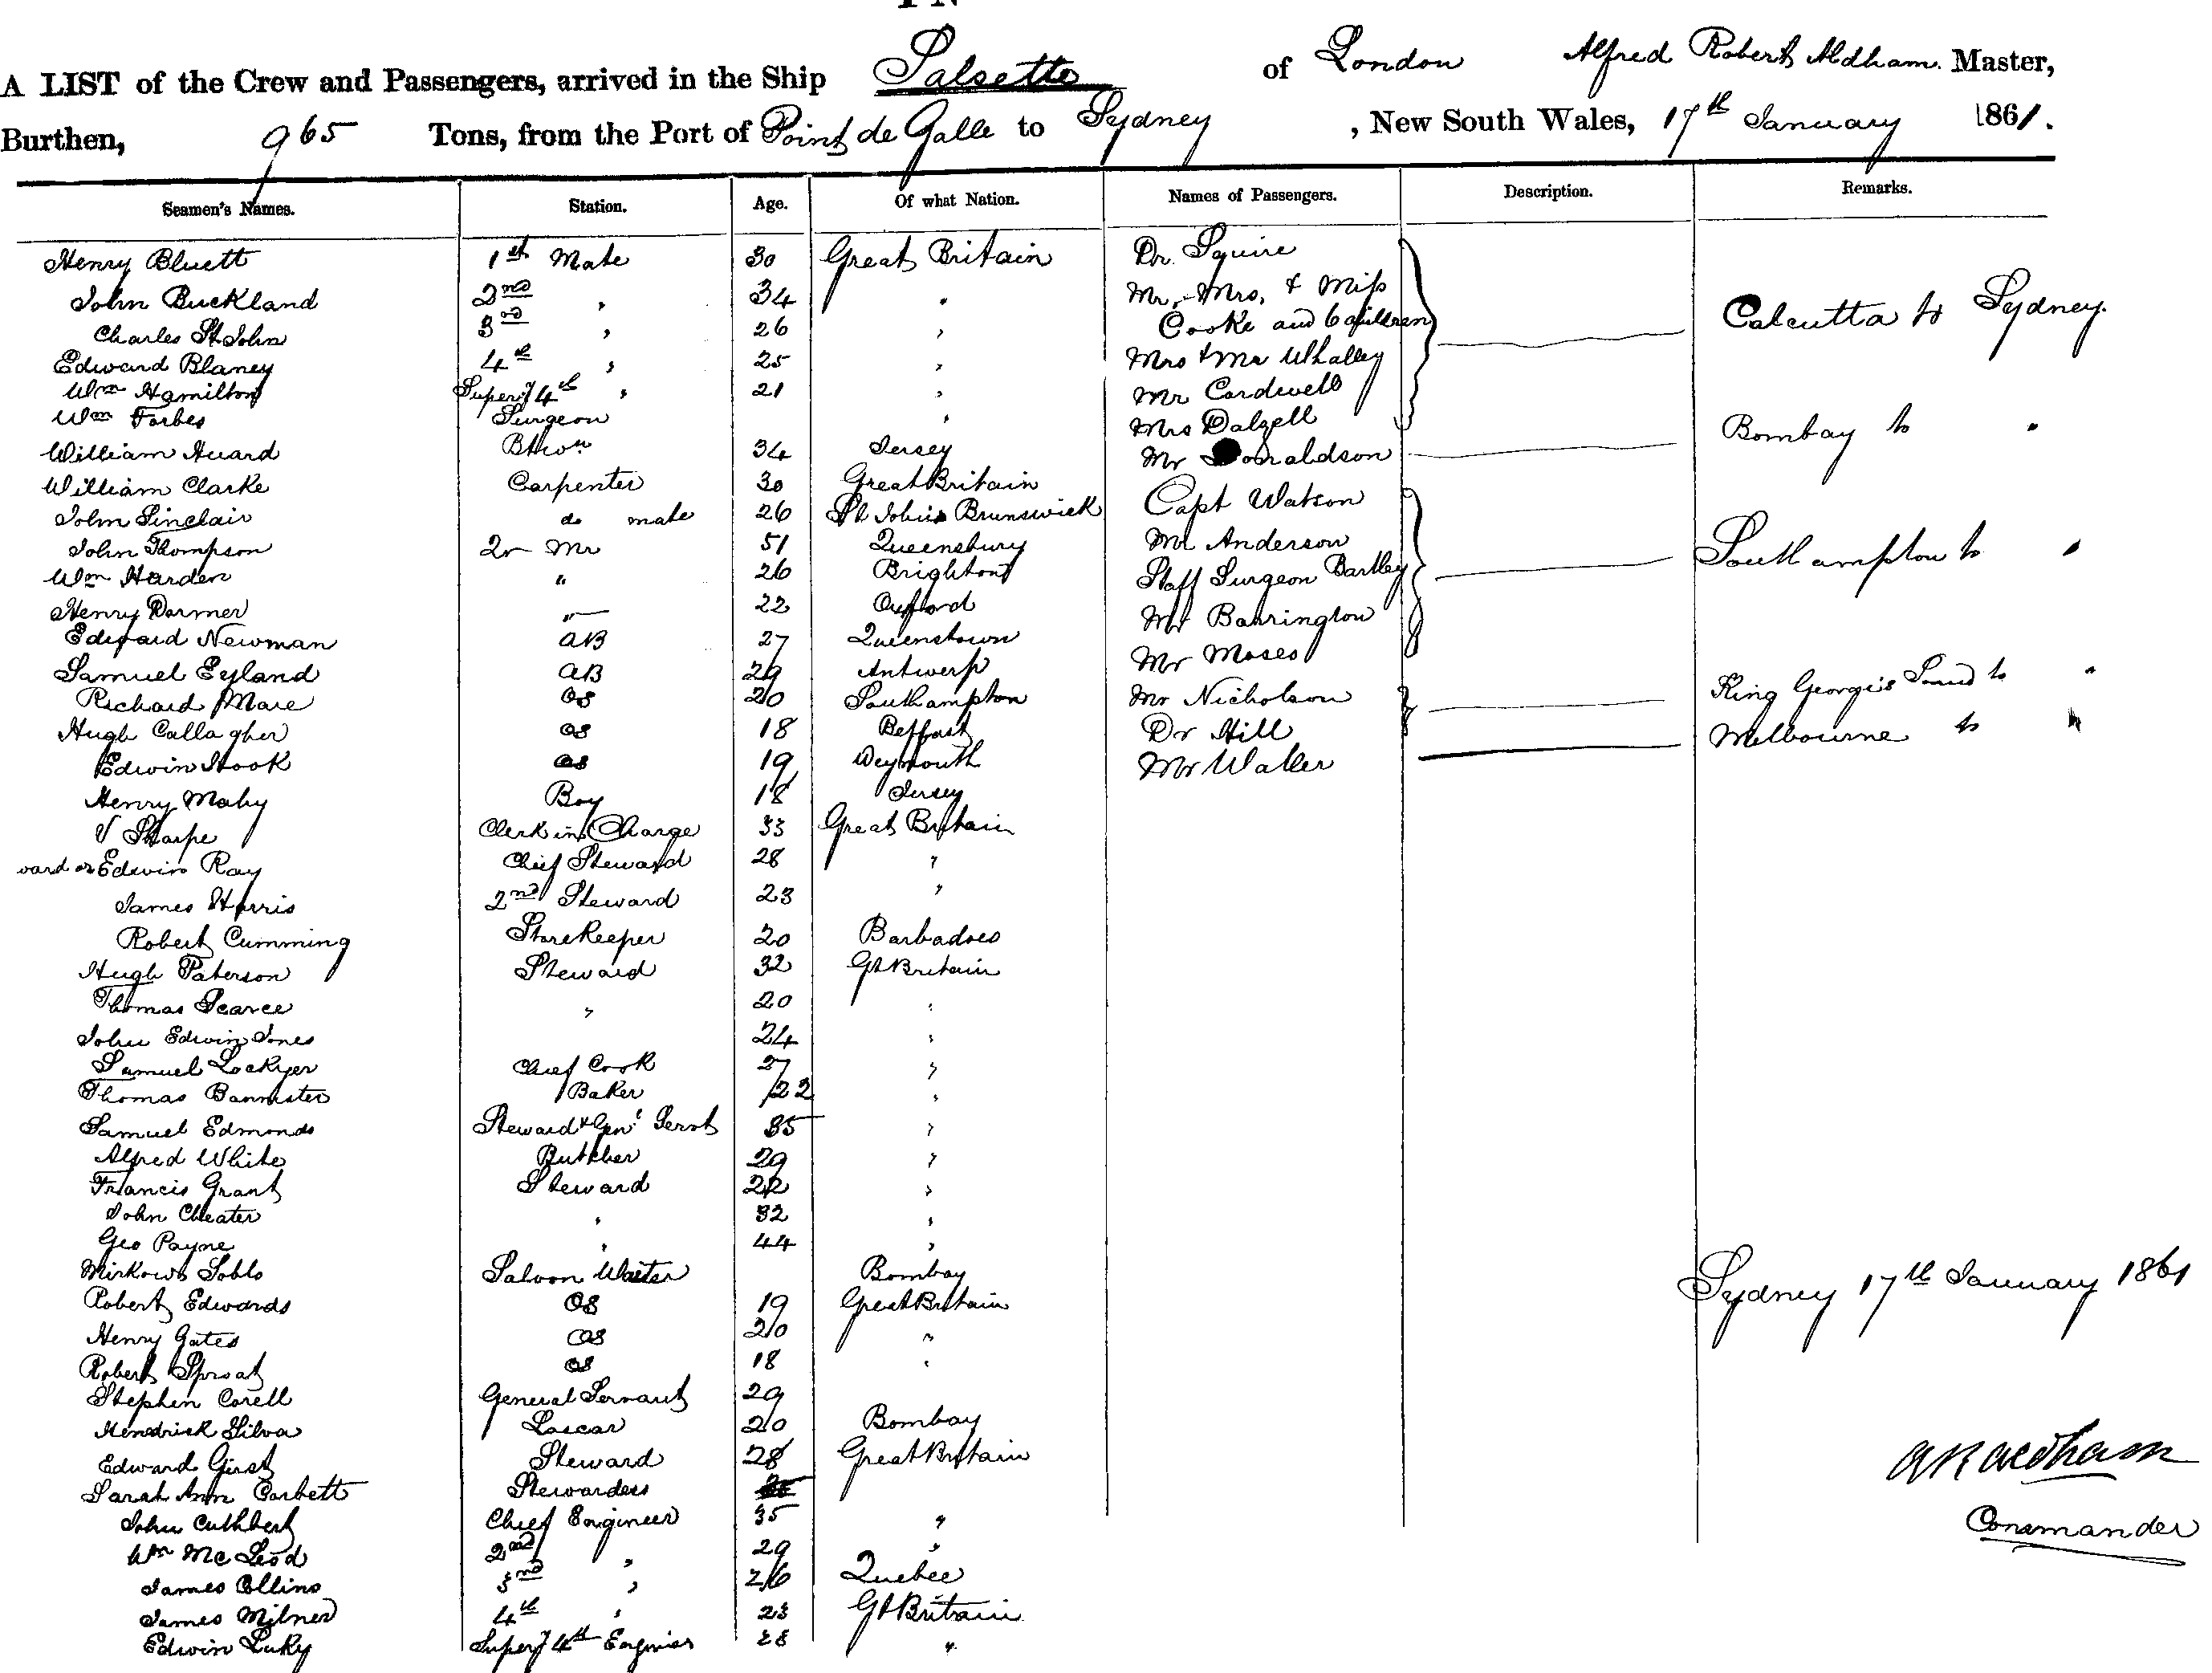 A LIST of the Crew and Passengers, arrived in the Ship Salsette of London Alfred Robert Aldham Master,
Burthen, 965 Tons, from the Port of Point de Galle to Sydney, New South Wales, 17th January 1861.
Seamen's Names. Station. Age. Of what Nation. Names of Passengers. Description. Remarks.
Henry Bluett 1st Mate 30 Great Britain Dr. Squire
John Buckland 2nd " 34 " Mr, Mrs, & Miss
Charles St John 3rd " 26 " Cooke and 6 children Calcutta to Sydney.
Edward Blaney 4th " 25 " Mrs & Mr Whalley
Wm Hamilton Supery 4th " 21 " Mr Cardwell
Wm Forbes Surgeon " Mrs Dalzell
William Huard 34 Jersey Mr Donaldson Bombay to "
William Clarke Carpenter 30 Great Britain Capt Watson
John Sinclair do mate 26 St Johns Brunswick
John Thompson 2r Mr 51 Queensbury Mr Anderson Southampton to "
Wm Harden " 26 Brighton Staff Surgeon Bartley
Henry Dormer " 22 Oxford Mr Barrington
Edward Newman AB 27 Queenstown
Samuel Eyland AB 29 Antwerp Mr Moses
Richard Mare OS 20 Southampton Mr Nicholson King George's Sound to "
Hugh Callagher OS 18 Belfast Dr Hill
Edwin Hook OS 19 Weymouth Mr Waller Melbourne to "
Henry Maby Boy 18 Jersey
V Sharpe Clerk in Charge 33 Great Britain
ward or Edwin Ray Chief Steward 28 "
James Harris 2nd Steward 23 "
Robert Cumming Storekeeper 20 Barbadoes
Hugh Paterson Steward 32 Gt Britain
Thomas Pearce " 20 "
John Edwin Jones 24 "
Samuel Lockyer Chief Cook 27 "
Thomas Bannister Baker 22 "
Samuel Edmonds Steward & Genl Servt 35 "
Alfred White Butcher 29 "
Francis Grant Steward 22 "
John Cheater " 32 "
Geo Payne " 44 "
Saloon Waiter Bombay Sydney 17th January 1861
Robert Edwards OS 19 Great Britain
Henry Gates OS 20 "
Robert Sproat OS 18 "
Stephen Corell General Servant 29
Hendrick Silva Lascar 20 Bombay
Edward Girst Steward 28 Great Britain A R Aldham
Sarah Ann Corbett Stewardess
John Cuthbert Chief Engineer 35 " Commander
Wm McLeod 2nd " 29 "
James Collins 3rd " 26 Quebec
James Milner 4th " 23 Gt Britain
Edwin Luky Supery 4th Engineer 28 "